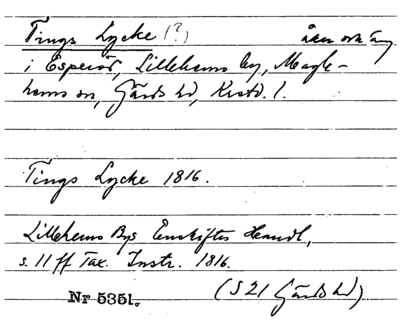 Tings Lycke (?) åker och äng
i Esperöd, Lillehems by, Magle-
hems sn, Gärds hd, Krstd. l.
Tings Lycke 1816.
Lillehems Bys Enskiftes Handl,
s. 11 ff Tax. Instr. 1816.
Nr 5351. (S 21 Gärds hd)